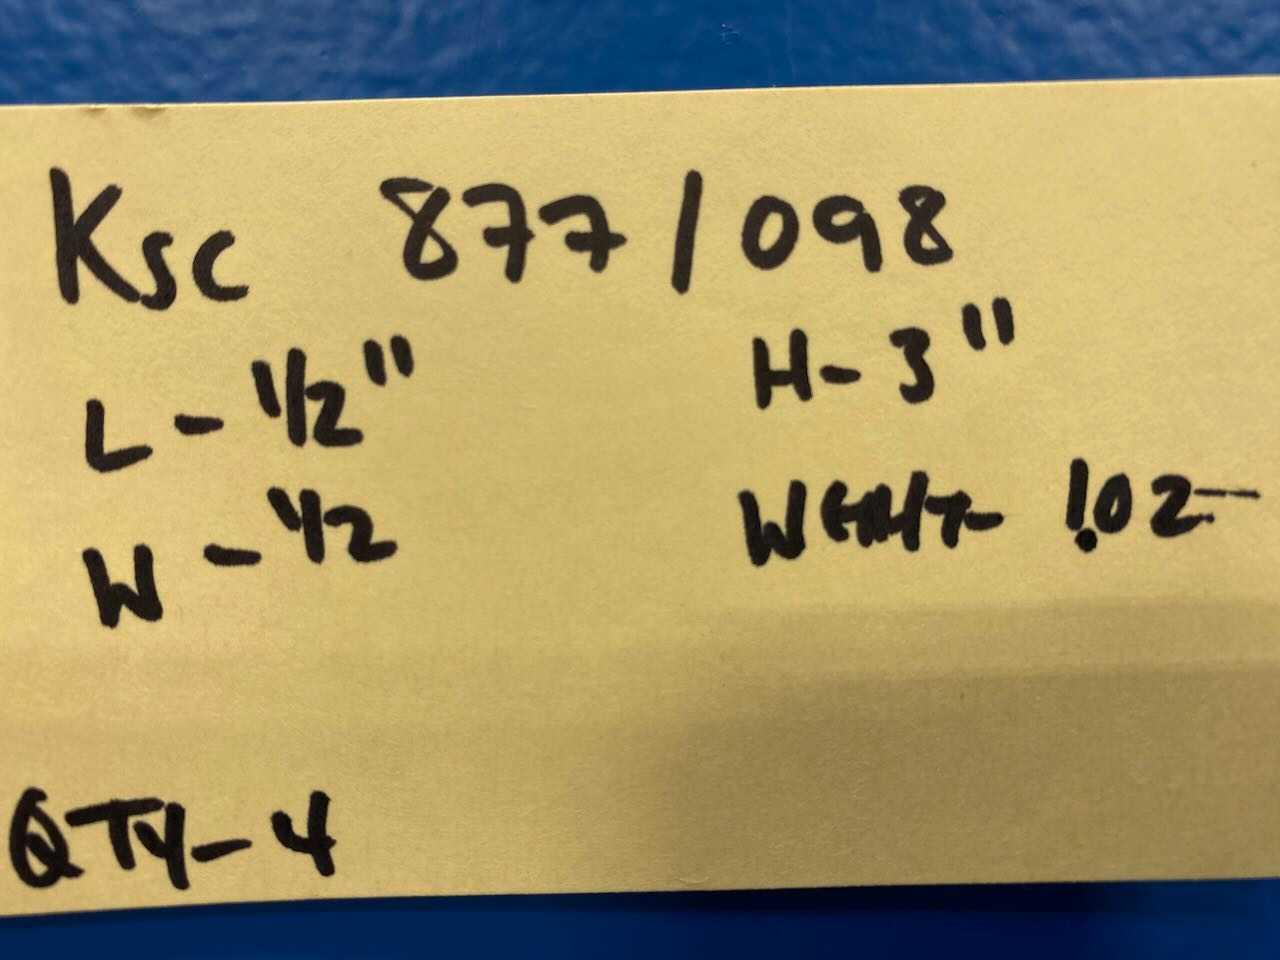 Ksc 877/098
L - 1/2" H - 3"
W - 1/2 - 1.02
QTY - 4